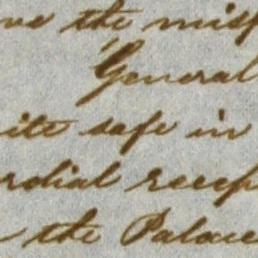 ve the miss
General
ite safe in
rdial recep
the Palace